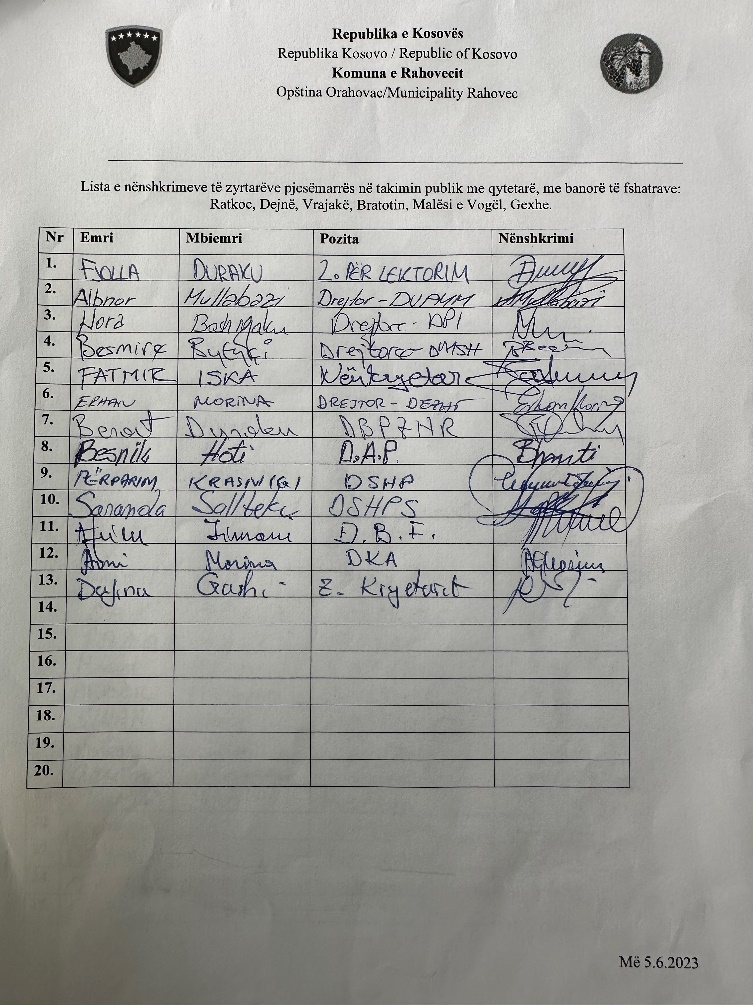 Republika e Kosovës
Republika Kosovo / Republic of Kosovo
Komuna e Rahovecit
Opština Orahovac/Municipality Rahovec
Lista e nënshkrimeve të zyrtarëve pjesëmarrës në takimin publik me qytetarë, me banorë të fshatrave:
Ratkoc, Dejnë, Vrajakë, Bratotin, Malësi e Vogël, Gexhe.
Nr Emri Mbiemri Pozita Nënshkrimi
1. FJOLLA DURAKU Z. PËR LEKTORIM
2. Albnor Mullabazi Drejtor - DUPMM
3. Nora Bashmaku Drejtore - DPI
4. Besmire Bytyçi Drejtore DMSH
5. FATMIR ISKA Nënkryetar
6. ERHAN MORINA DREJTOR -
7. Benart Dunden DBPZHR
8. Besnik Hoti D.A.P.
9. PËRPARIM KRASNIQI DSHP
10. Saranda Sallteku DSHPS
11. D.B.F.
12. Morina DKA
13. Dafina Gashi Z. Kryetarit
14.
15.
16.
17.
18.
19.
20.
Më 5.6.2023